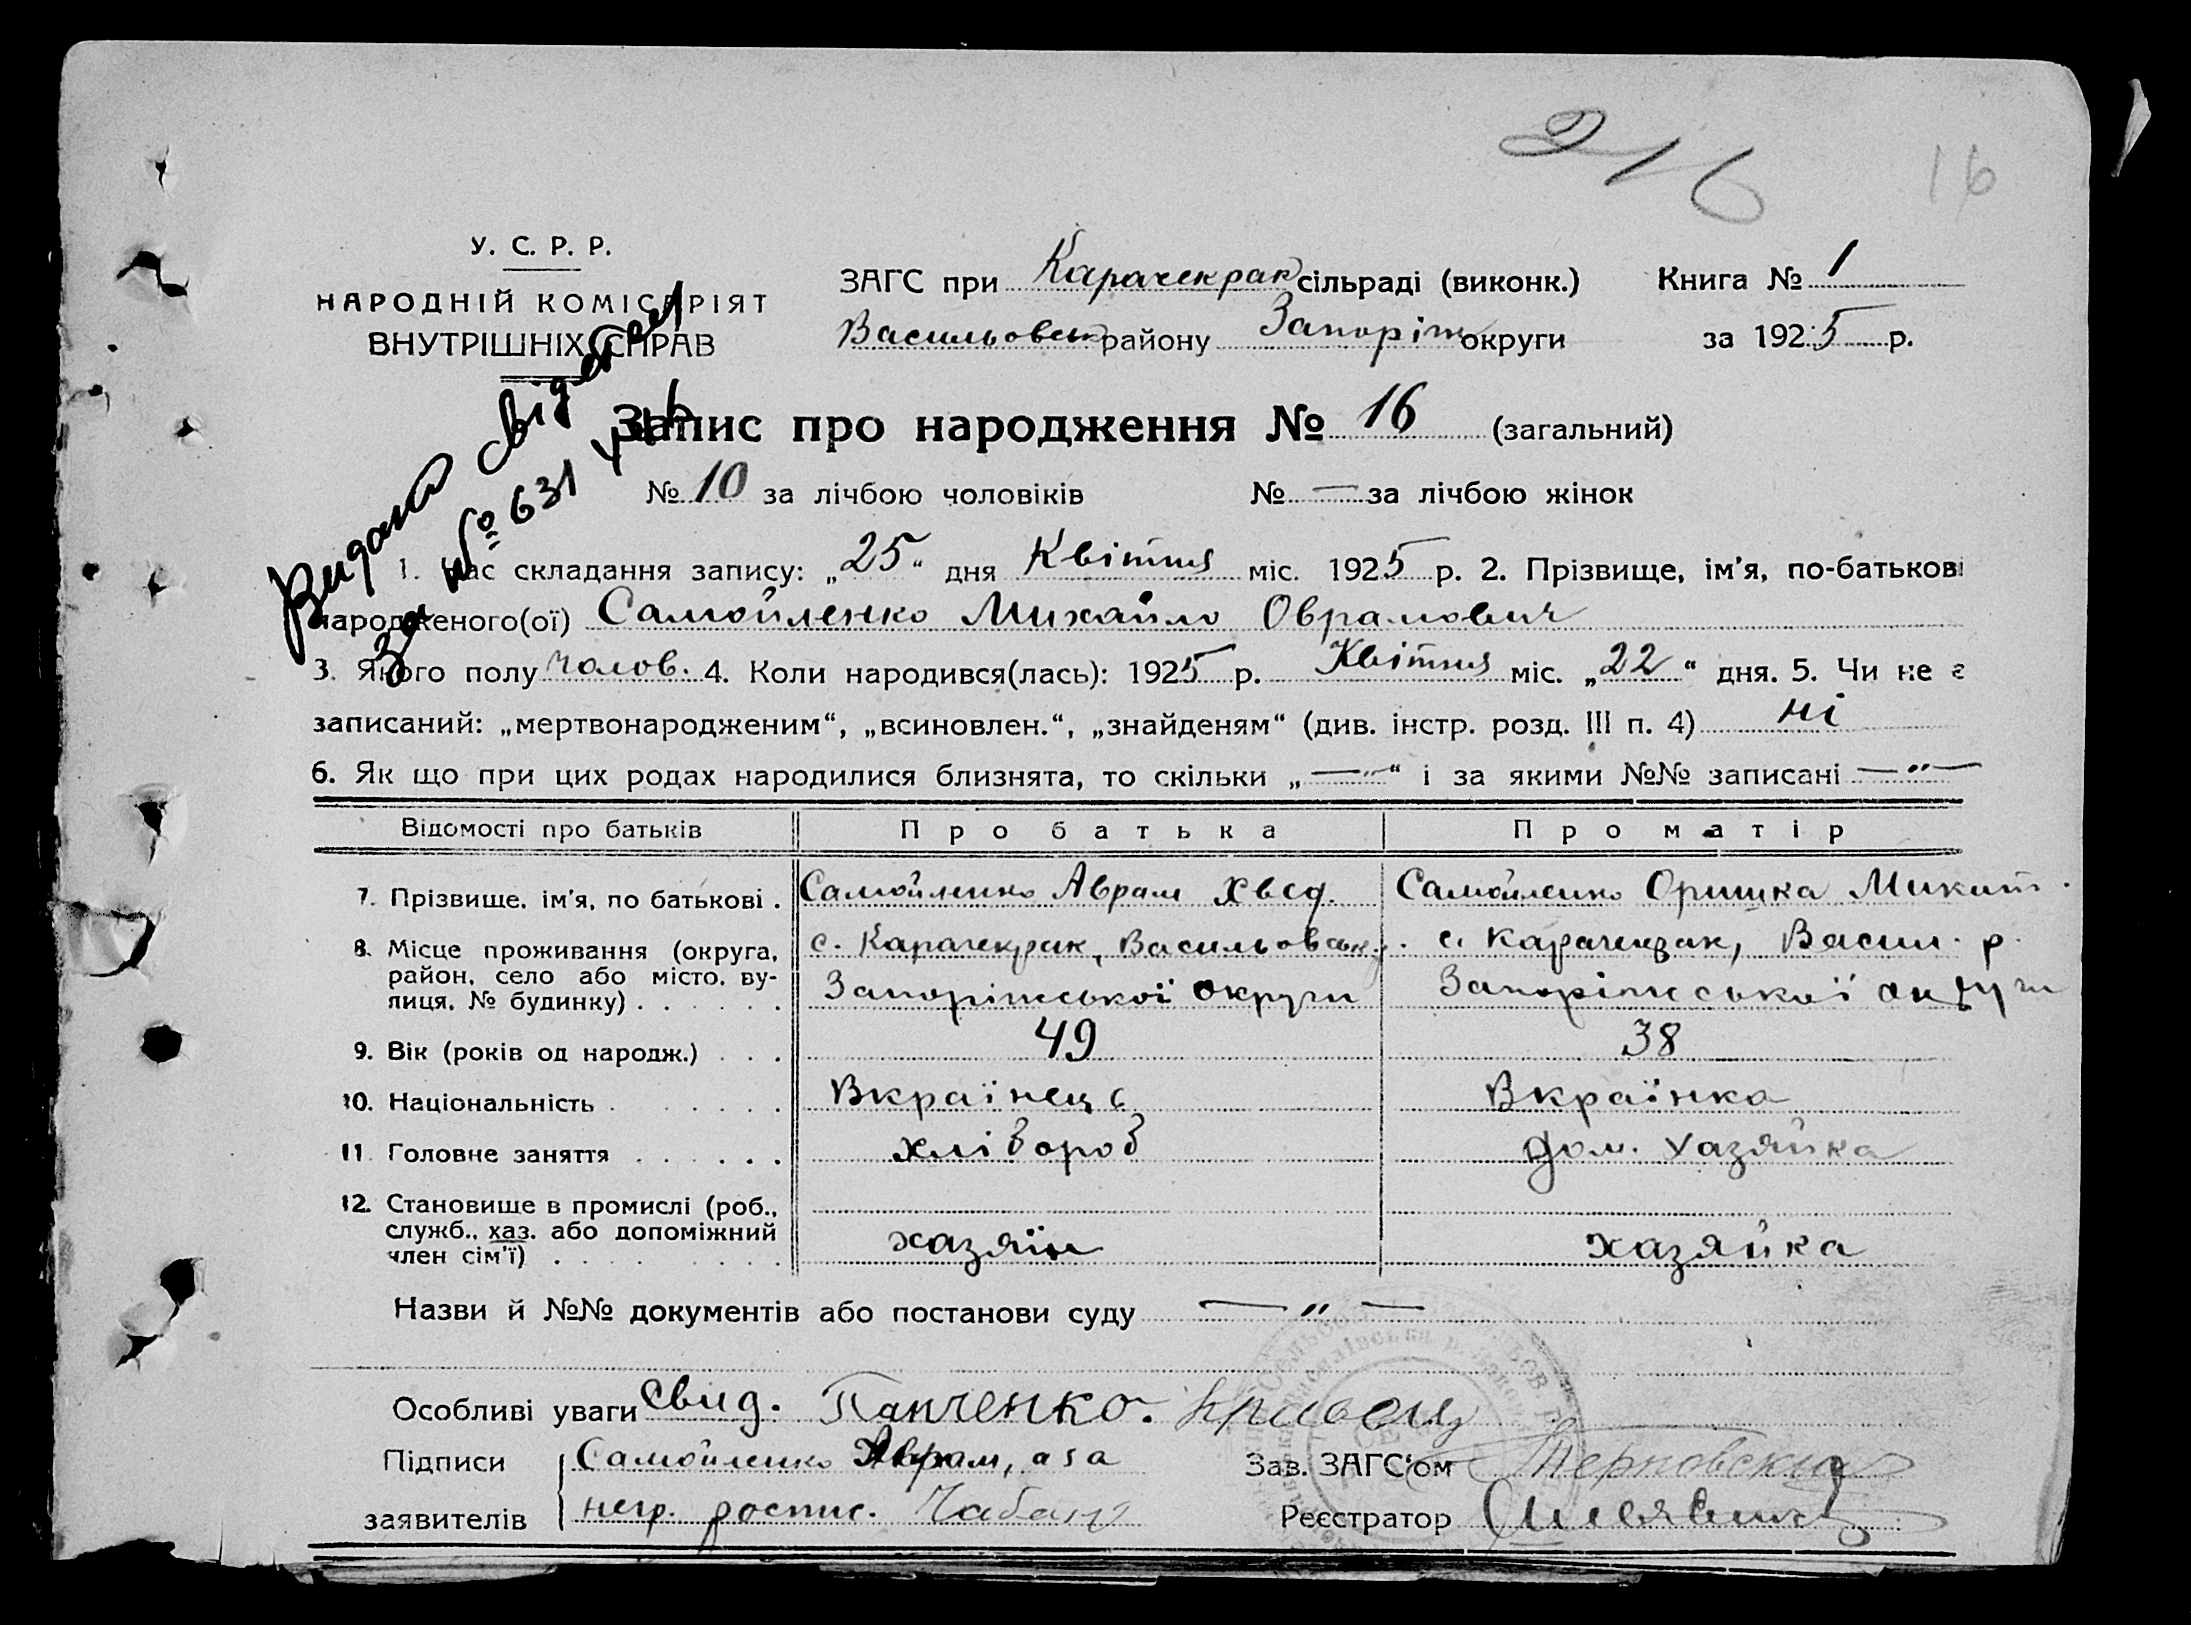 216 16
У. С. Р. Р.
НАРОДНІЙ КОМІСАРІЯТ
ВНУТРІШНІХ СПРАВ
ЗАГС при Карачекрак сільраді (виконк.) Книга № 1
Васильовськ району Запоріж округи за 1925 р.
Видано свідотсв
За № 631
Запис про народження № 16 (загальний)
№ 10 за лічбою чоловіків № — за лічбою жінок
1. Час складання запису: „25“ дня Квітня міс. 1925 р. 2. Прізвище, ім'я, по-батькові
народженого(ої) Самойленко Михайло Оврамович
3. Якого полу чолов. 4. Коли народився(лась): 1925 р. Квітня міс. „22“ дня. 5. Чи не є
записаний: „мертвонародженим“, „всиновлен.“, „знайденям“ (див. інстр. розд. III п. 4) ні
6. Як що при цих родах народилися близнята, то скільки „—"—“ і за якими №№ записані —"—
Відомості про батьків Про батька Про матір
7. Прізвище, ім'я, по батькові . Самойленко Аврам Хвед. Самойленко Оришка Микит.
8. Місце проживання (округа, район, село або місто, вулиця, № будинку) . . . . . . с. Карачекрак, Васильовськ. р. с. Карачекрак, Васил. р.
Запоріжської округи Запоріжської округи
9. Вік (років од народж.) . . . 49 38
10. Національність . . . . . . . Вкраїнець Вкраїнка
11. Головне заняття . . . . . . хлібороб дом. хазяйка
12. Становище в промислі (роб., служб., хаз. або допоміжний член сім'ї) . . . . . . . . хазяїн хазяйка
Назви й №№ документів або постанови суду — " —
Особливі уваги свид. Панченко.
Підписи Самойленко Аврам, аза Зав. ЗАГС'ом Терновский
заявителів негр. роспис. Чабан Реєстратор